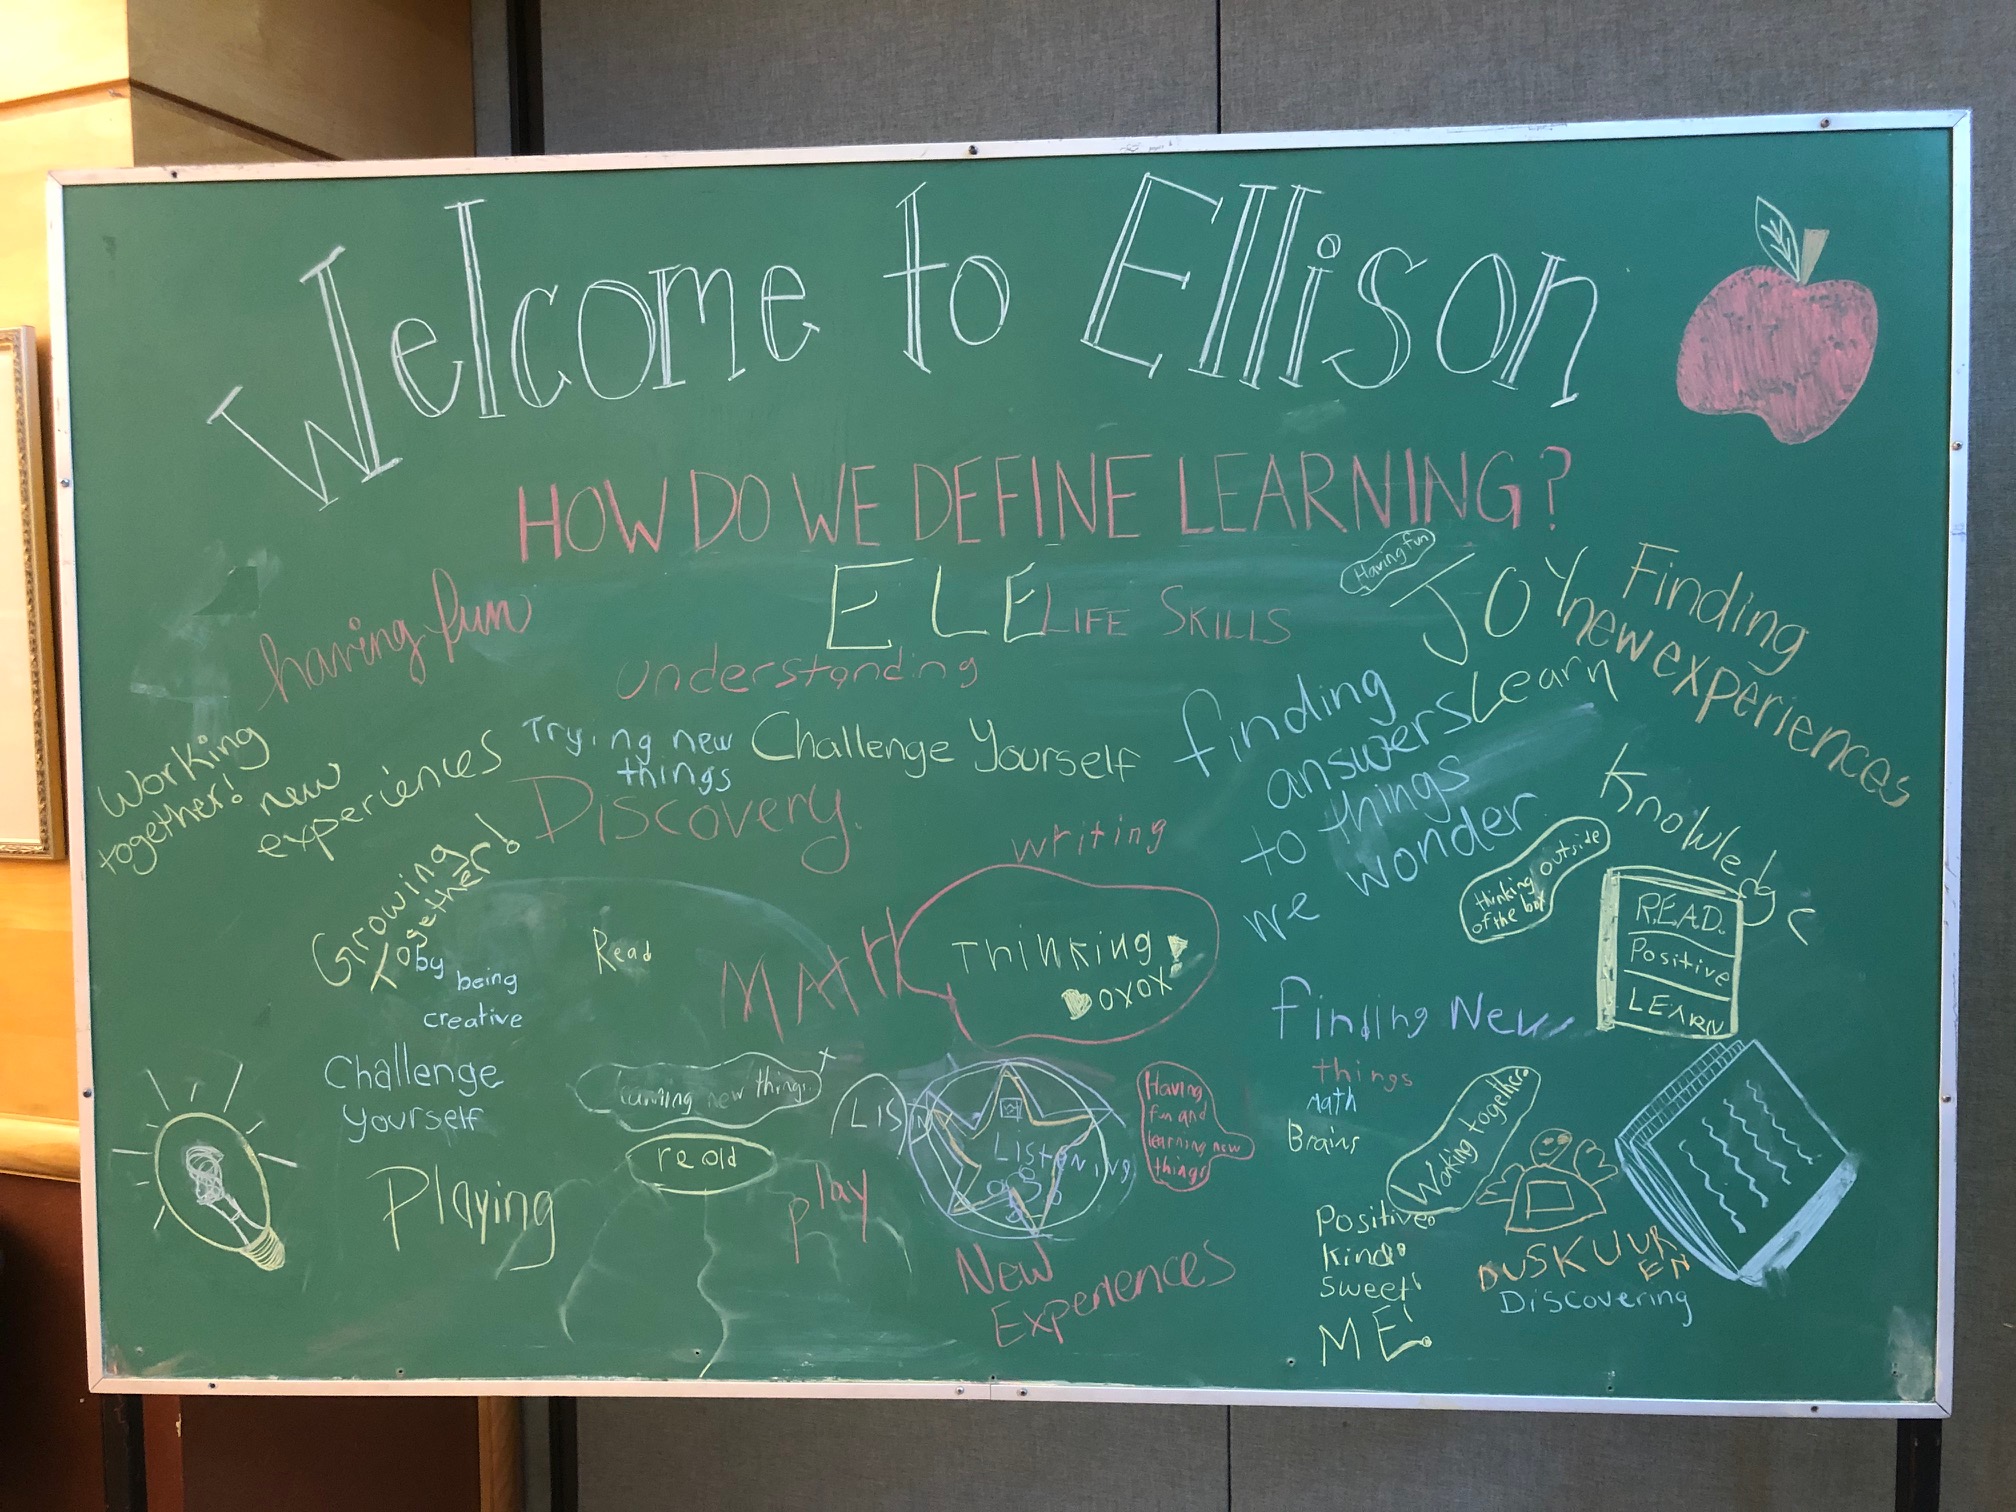 Welcome to Ellison
HOW DO WE DEFINE LEARNING?
Having fun
JOY
Finding
new experiences
ELE
LIFE SKILLS
having fun
understanding
Learn
finding
answers
to things
we wonder
Working
together!
new
experiences
Trying new
things
Challenge Yourself
Discovery
Knowledge
writing
thinking outside
of the box
Growing
Together!
by being
creative
Read
MATH
Thinking!
oxox!
READ.
Positive
LEARN
finding New
things
math
Brains
Challenge
yourself
learning new things.
Listening
Having
fun and
learning new
things
Working together.
Playing
play
New
Experiences
Positive
kind
sweet!
ME!
DUSKUUR
EN
Discovering